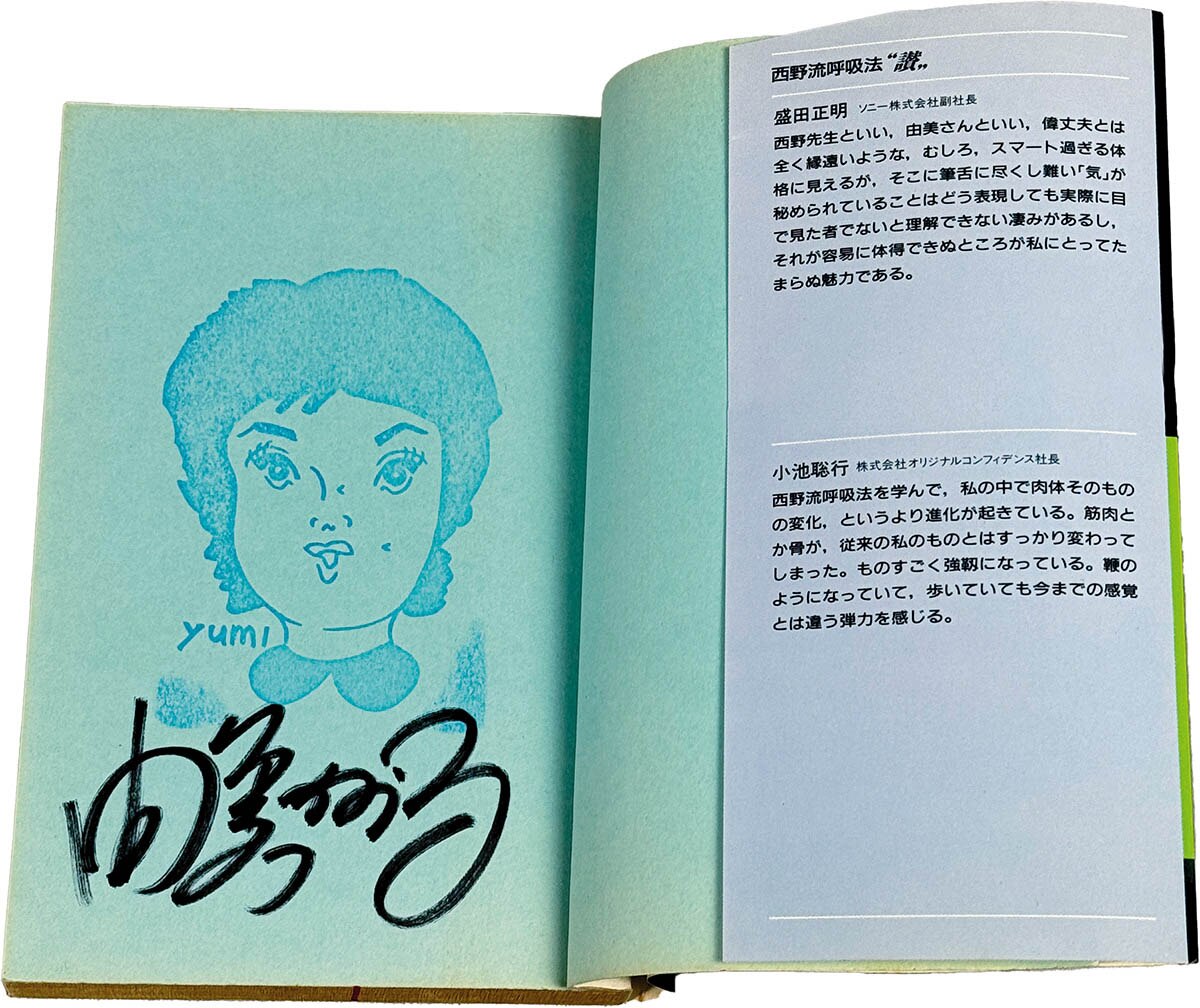 yumi
由美かおる
西野流呼吸法“讃”
盛田正明 ソニー株式会社副社長
西野先生といい，由美さんといい，偉丈夫とは
全く縁遠いような，むしろ，スマート過ぎる体
格に見えるが，そこに筆舌に尽くし難い「気」が
秘められていることはどう表現しても実際に目
で見た者でないと理解できない凄みがあるし，
それが容易に体得できぬところが私にとってた
まらぬ魅力である。
小池聡行 株式会社オリジナルコンフィデンス社長
西野流呼吸法を学んで，私の中で肉体そのもの
の変化，というより進化が起きている。筋肉と
か骨が，従来の私のものとはすっかり変わって
しまった。ものすごく強靱になっている。鞭の
ようになっていて，歩いていても今までの感覚
とは違う弾力を感じる。